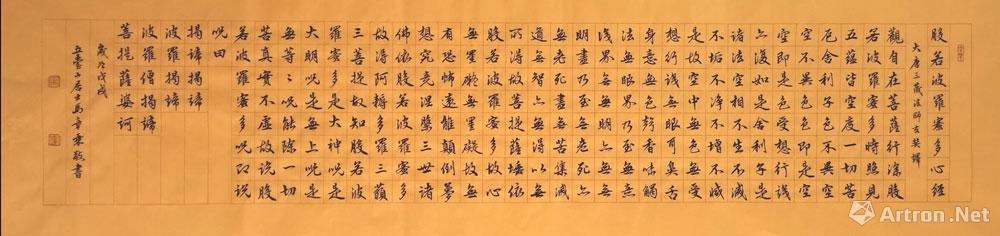 般若波羅蜜多心經
大唐三藏法師玄奘譯
觀自在菩薩行深般
若波羅蜜多時照見
五蘊皆空度一切苦
厄舍利子色不異空
空不異色色即是空
空即是色受想行識
亦復如是舍利子是
諸法空相不生不滅
不垢不淨不增不減
是故空中無色無受
想行識無眼耳鼻舌
身意無色聲香味觸
法無眼界乃至無意
識界無無明亦無無
明盡乃至無老死亦
無老死盡無苦集滅
道無智亦無得以無
所得故菩提薩埵依
般若波羅蜜多故心
無罣礙無罣礙故無
有恐怖遠離顛倒夢
想究竟涅槃三世諸
佛依般若波羅蜜多
故得阿耨多羅三藐
三菩提故知般若波
羅蜜多是大神呪是
大明呪是無上呪是
無等〻呪能除一切
苦真實不虛故說般
若波羅蜜多呪即說
呪曰
揭諦揭諦
波羅揭諦
波羅僧揭諦
菩提薩婆訶
歲次戊戌
五臺山居士馬書
Artron.Net